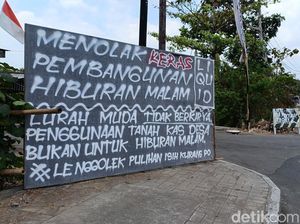 MENOLAK KERAS
PEMBANGUNAN
HIBURAN MALAM
LIQUID
LURAH MUDA TIDAK BERKARYA
PENGGUNAAN TANAH KAS DESA
BUKAN UNTUK HIBURAN MALAM.
# LENGGOLEK PULIHAN ISIH KURANG PO
detikcom